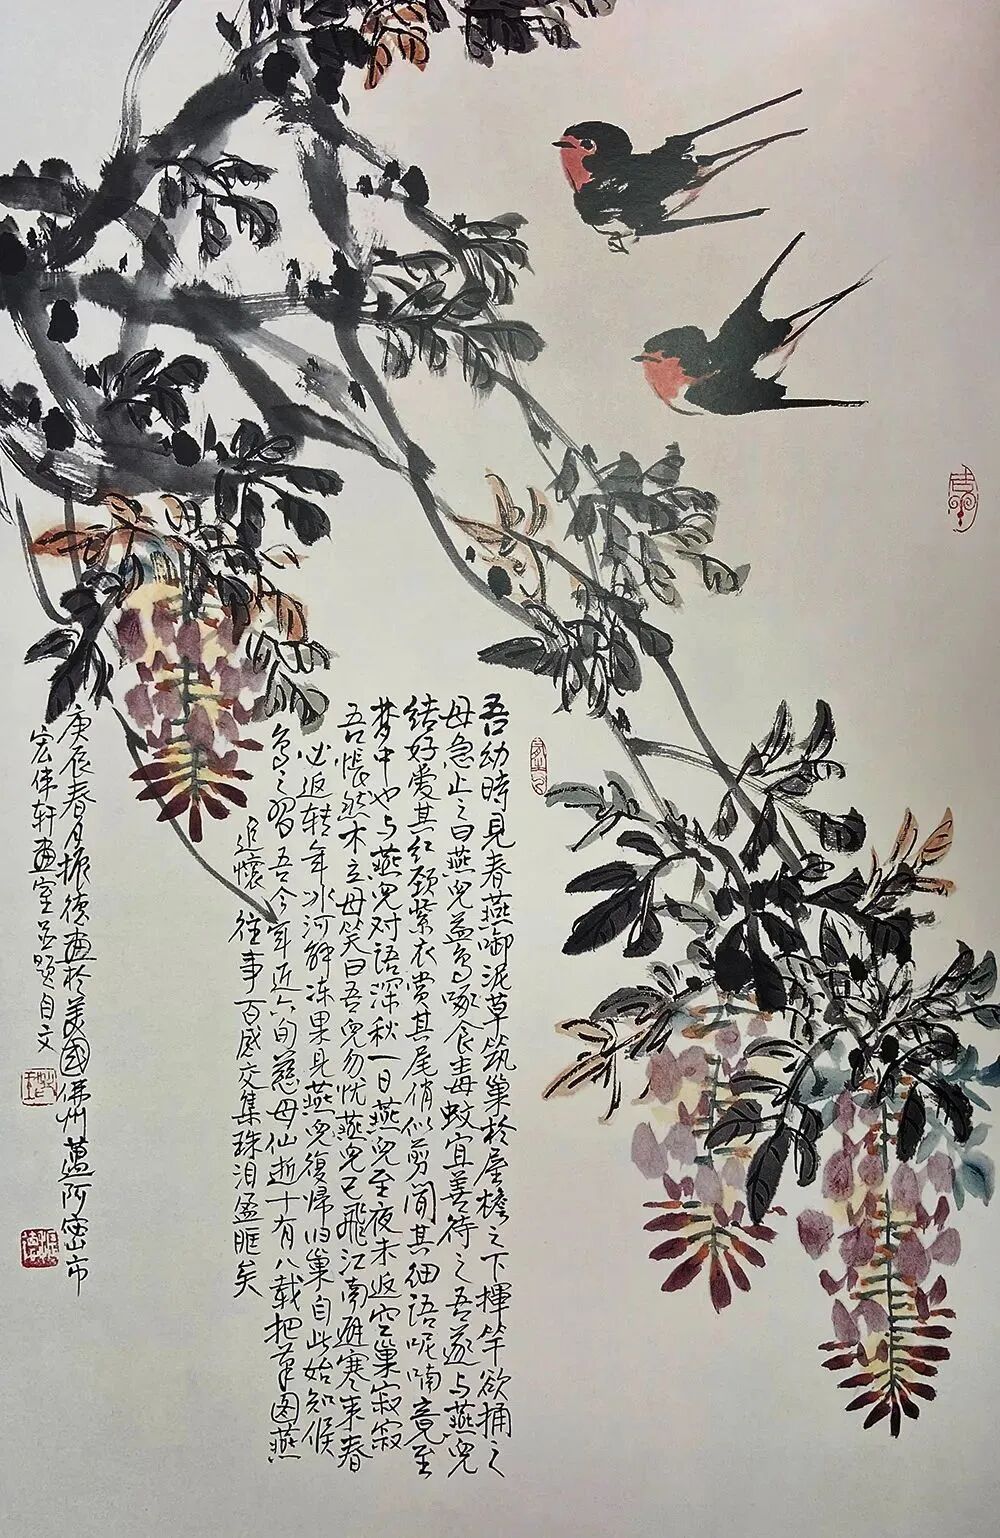 吾幼時見春燕啣泥草筑巢於屋檐之下揮竿欲捅之
母急止之曰燕兒益鳥啄食毒蚊宜善待之吾遂与燕兒
结好爱其红颈紫衣赏其尾俏似剪闻其细语呢喃竟至
梦中也与燕兒对语深秋一日燕兒至夜未返空巢寂寂
吾怅然木立母笑曰吾兒勿忧燕兒已飛江南避寒来春
必返转年冰河解冻果見燕兒復帰旧巢自此始知候
鸟之習吾今年近六旬慈母仙逝十有八载把筆图燕
追懷往事百感交集珠泪盈眶矣
庚辰春月振德画於美國佛州
宏伟轩画室並题自文